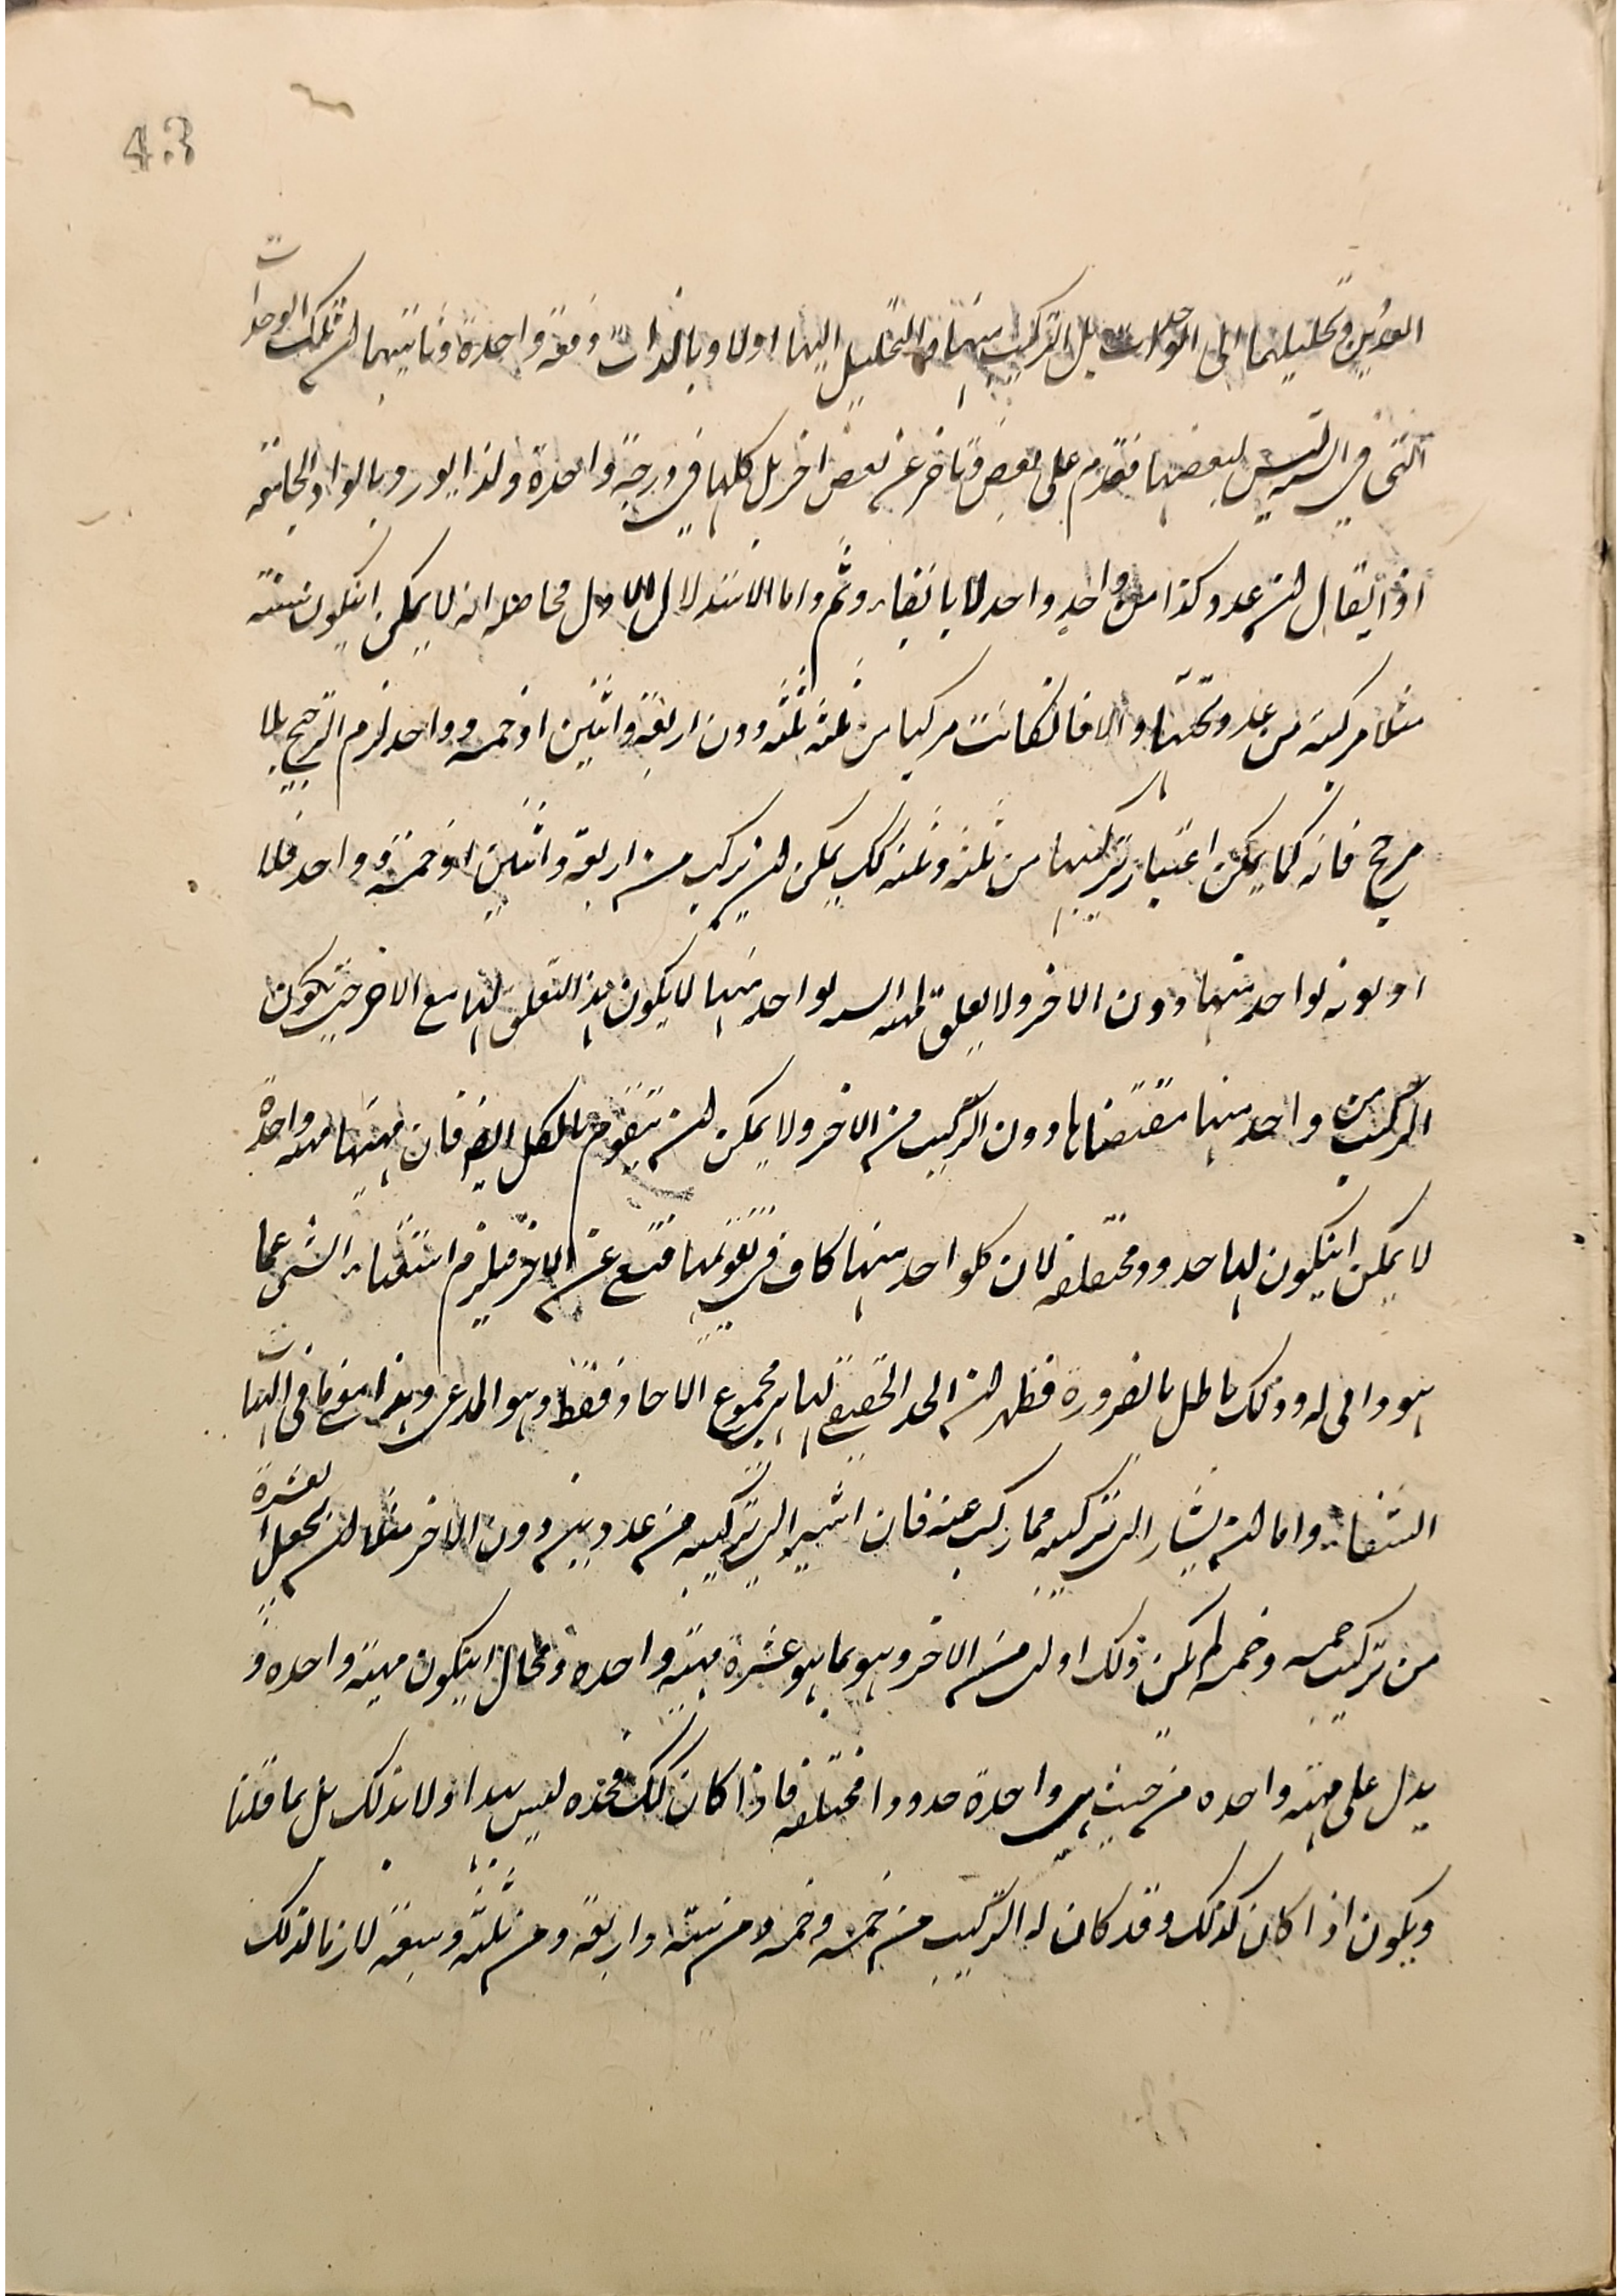 43
العددين وتحليلهما الى الوحدات بل التركيب منها والتحليل اليها اولا وبالذات دفعة واحدة وثانيهما ان تلك الوحدات
التى فى الستة ليس لبعضها تقدم على بعض وتاخر عن بعض اخر بل كلها فى درجة واحدة ولذا يورد بالواو الجامعة
اذ ايقال ان عدد كذا من واحد وواحد لا بالفاء وثم واما الاستدلال الاول فحاصله انه لا يمكن انيكون ستة
مثلا مركبة من عدد تحتها والا فانكانت مركبا من ثلثة ثلثة دون اربعة واثنين او خمسة وواحد لزم الترجيح بلا
مرجح فانه كما يمكن اعتبار تركيبها من ثلثة وثلثة كك يمكن ان يركب من اربعة واثنين او خمسة وواحد فلا
اولوية لواحد منها دون الاخر ولا تعلق لمهية الستة لواحد منها لا يكون هذا التعلق لها مع الاخر حتى يكون
التركيب من واحد منها مقتضاها دون التركيب من الاخر ولا يمكن ان تتقوم بالكل ايضا فان مهيتها مهية واحدة
لا يمكن انيكون لها حدود مختلفة لان كلواحد منها كاف فى تقويمها فتستغنى عن الاخر فيلزم استغناء الشئ عما
هو ذاتى له وذلك باطل بالضرورة فظهر ان الحد الحقيقى لها هى مجموع الاحاد فقط وهو المدعى وهذا معنى ما فى الهيات
الشفاء واما ان يشار الى تركيبه مما ركب عنه فان اشير الى تركيبه من عددين دون الاخر مثلا ان يجعل العشرة
من تركيب خمسة وخمسة لم يكن ذلك اولى من الاخر وهو بما هو عشرة مهية واحدة ومحال انيكون مهية واحدة و
يدل على مهية واحدة من حيث هى واحدة حدودا مختلفة فاذا كان كك فحده ليس بهذا ولا بذلك بل بما قلنا
ويكون اذا كان كذلك وقد كان له التركيب من خمسة وخمسة ومن ستة واربعة ومن ثلثة وسبعة لازما لذلك